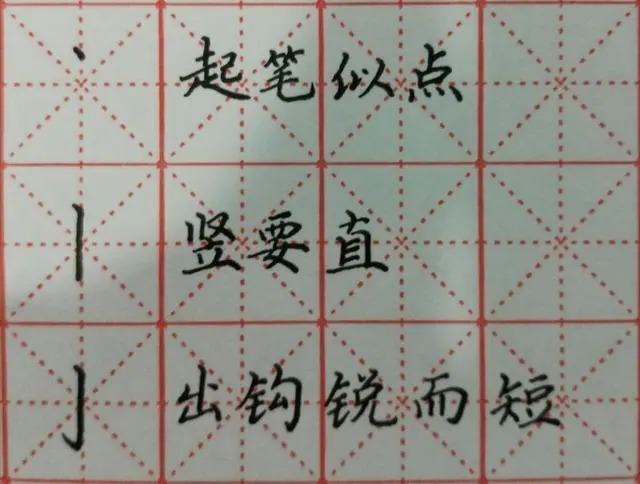 丶 起笔似点
丨 竖要直
亅 出钩锐而短